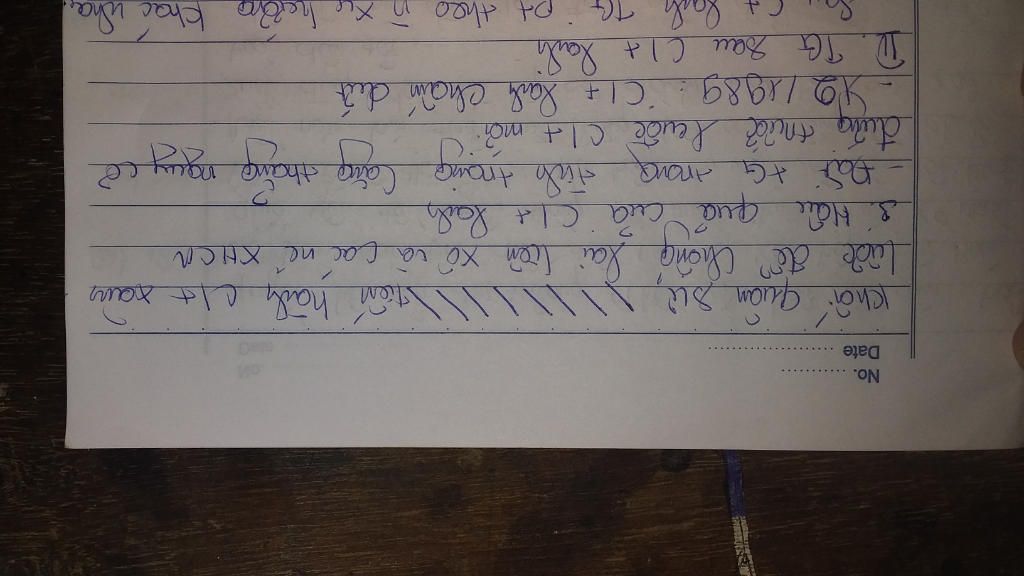 No. ............
Date .....................
khối quân sự, tiến hành c/t xâm
lược để chống lại Liên Xô và các nc XHCN
3. Hậu quả của C/t lạnh
- Đặt TG trong tình trạng căng thẳng nguy cơ
đứng trước cuộc C/t mới
- 12/1989: C/t lạnh chấm dứt
II. TG sau C/t lạnh
Sau C/t lạnh TG pt theo xu hướng khác nhau